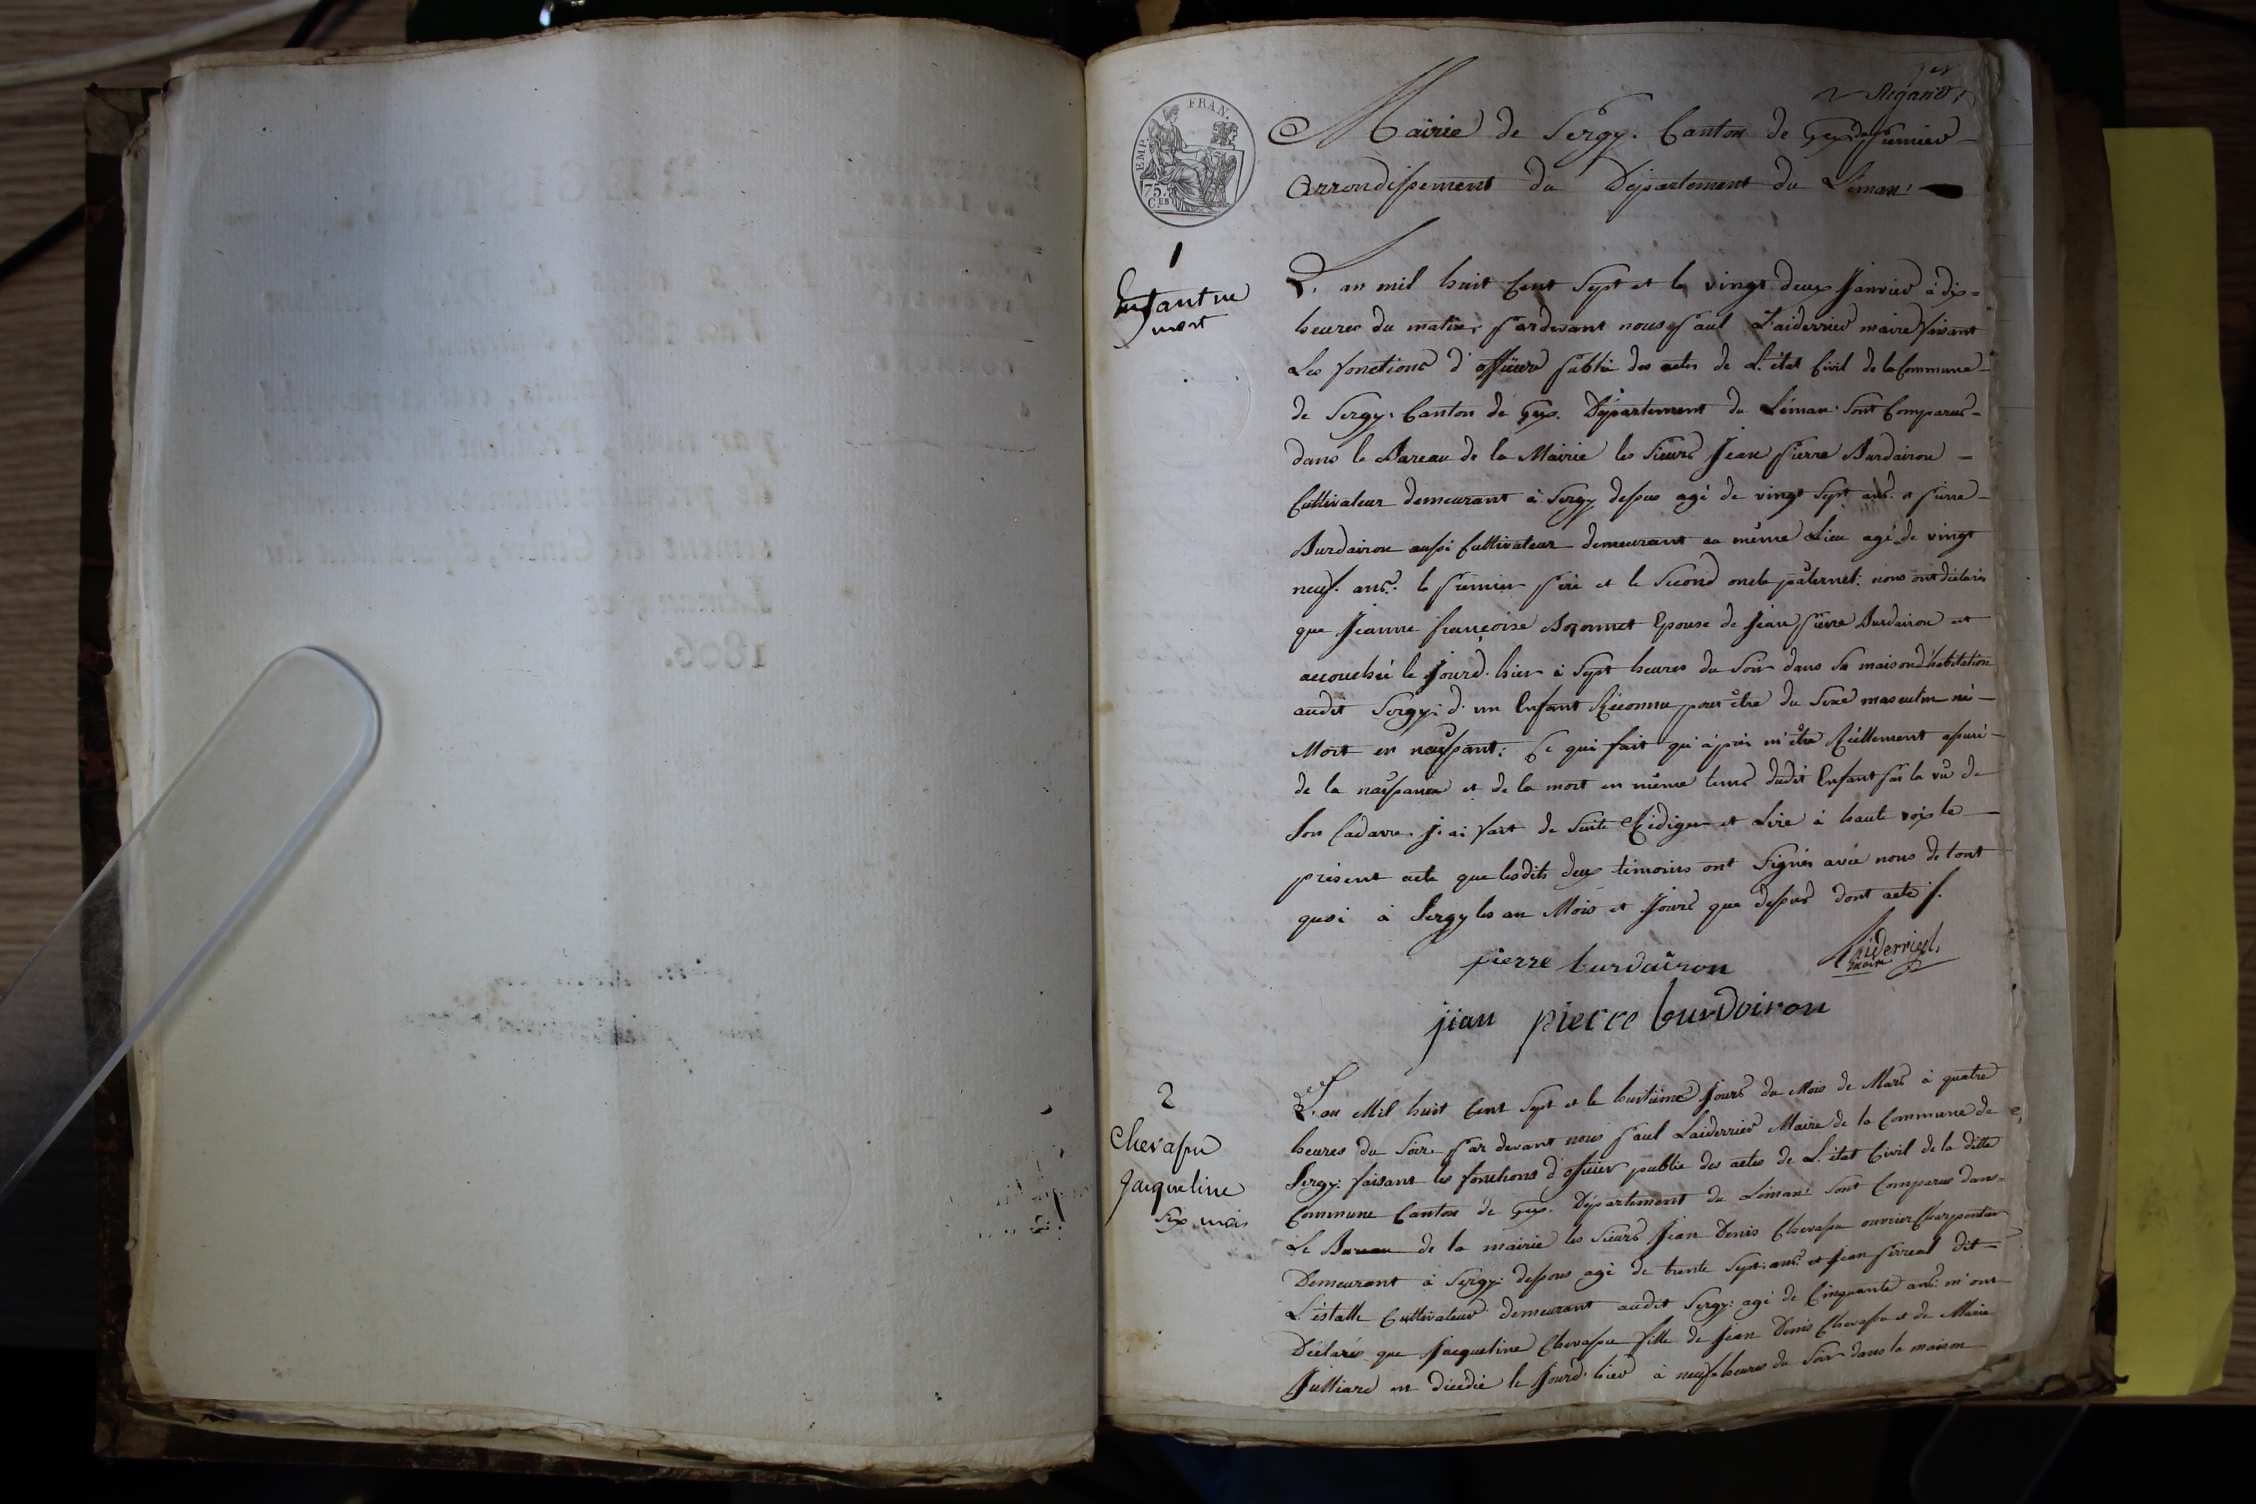 EMP. FRAN.
75
Mairie de Sergy. Canton de Gex premier
Arrondissement du Département du Léman.
1
Enfant né
mort
L'an mil huit Cent Sept et le vingt deux Janvier à dix
heures du matin, pardevant nous Paul Laiderrier maire faisant
Les fonctions d'officier public des actes de L'état Civil de la Commune
de Sergy. Canton de Gex. Département du Léman. Sont Comparus
dans le Bareau de la Mairie les sieurs Jean Pierre Burdairon
Cultivateur demeurant à Sergy dessus agé de vingt Sept ans. et pierre
Burdairon aussi Cultivateur demeurant au même Lieu agé de vingt
neuf ans. le premier père et le Second oncle paternel. nous ont déclarés
que Jeanne françoise Bozonnet Epouse de Jean Pierre Burdairon est
accouchée le Jourd'hier à Sept heures du Soir dans Sa maison d'habitation
audit Sergy: d'un Enfant Reconnu pour être du Sexe masculin né
Mort en naissant: Ce qui fait qu'après m'être Réellement assuré
de la naissance et de la mort en même tems dudit Enfant par la vü de
Son Cadavre, J'ai fait de Suite Rédiger et Lire à haute voix le
présent acte que lesdits deux témoins ont Signés avec nous de tout
quoi à Sergy les an Mois et Jours que dessus dont acte.
pierre burdairon
Laiderrier
maire
jean pierre burdoiron
2
Chevassu
Jacqueline
Six mois
L'an Mil huit Cent Sept et le huitième Jours du Mois de Mars à quatre
heures du Soir. par devant nous Paul Laiderrier Maire de la Commune de
Sergy: faisant les fonctions d'officier public des actes de L'état Civil de la ditte
Commune Canton de Gex. Département du Léman: Sont Comparus dans
Le Bureau de la mairie les Sieurs Jean Denis Chevassu ouvrier Charpentier
Demeurant à Sergy: dessous agé de trente Sept ans. et Jean dit
Cultivateur demeurant audit Sergy: agé de Cinquante ans: m'ont
Déclarés que Jacqueline Chevassu fille de Jean Denis Chevassu et de Marie
Julliard est décédée le Jourd'hier à neuf heures du Soir dans la maison